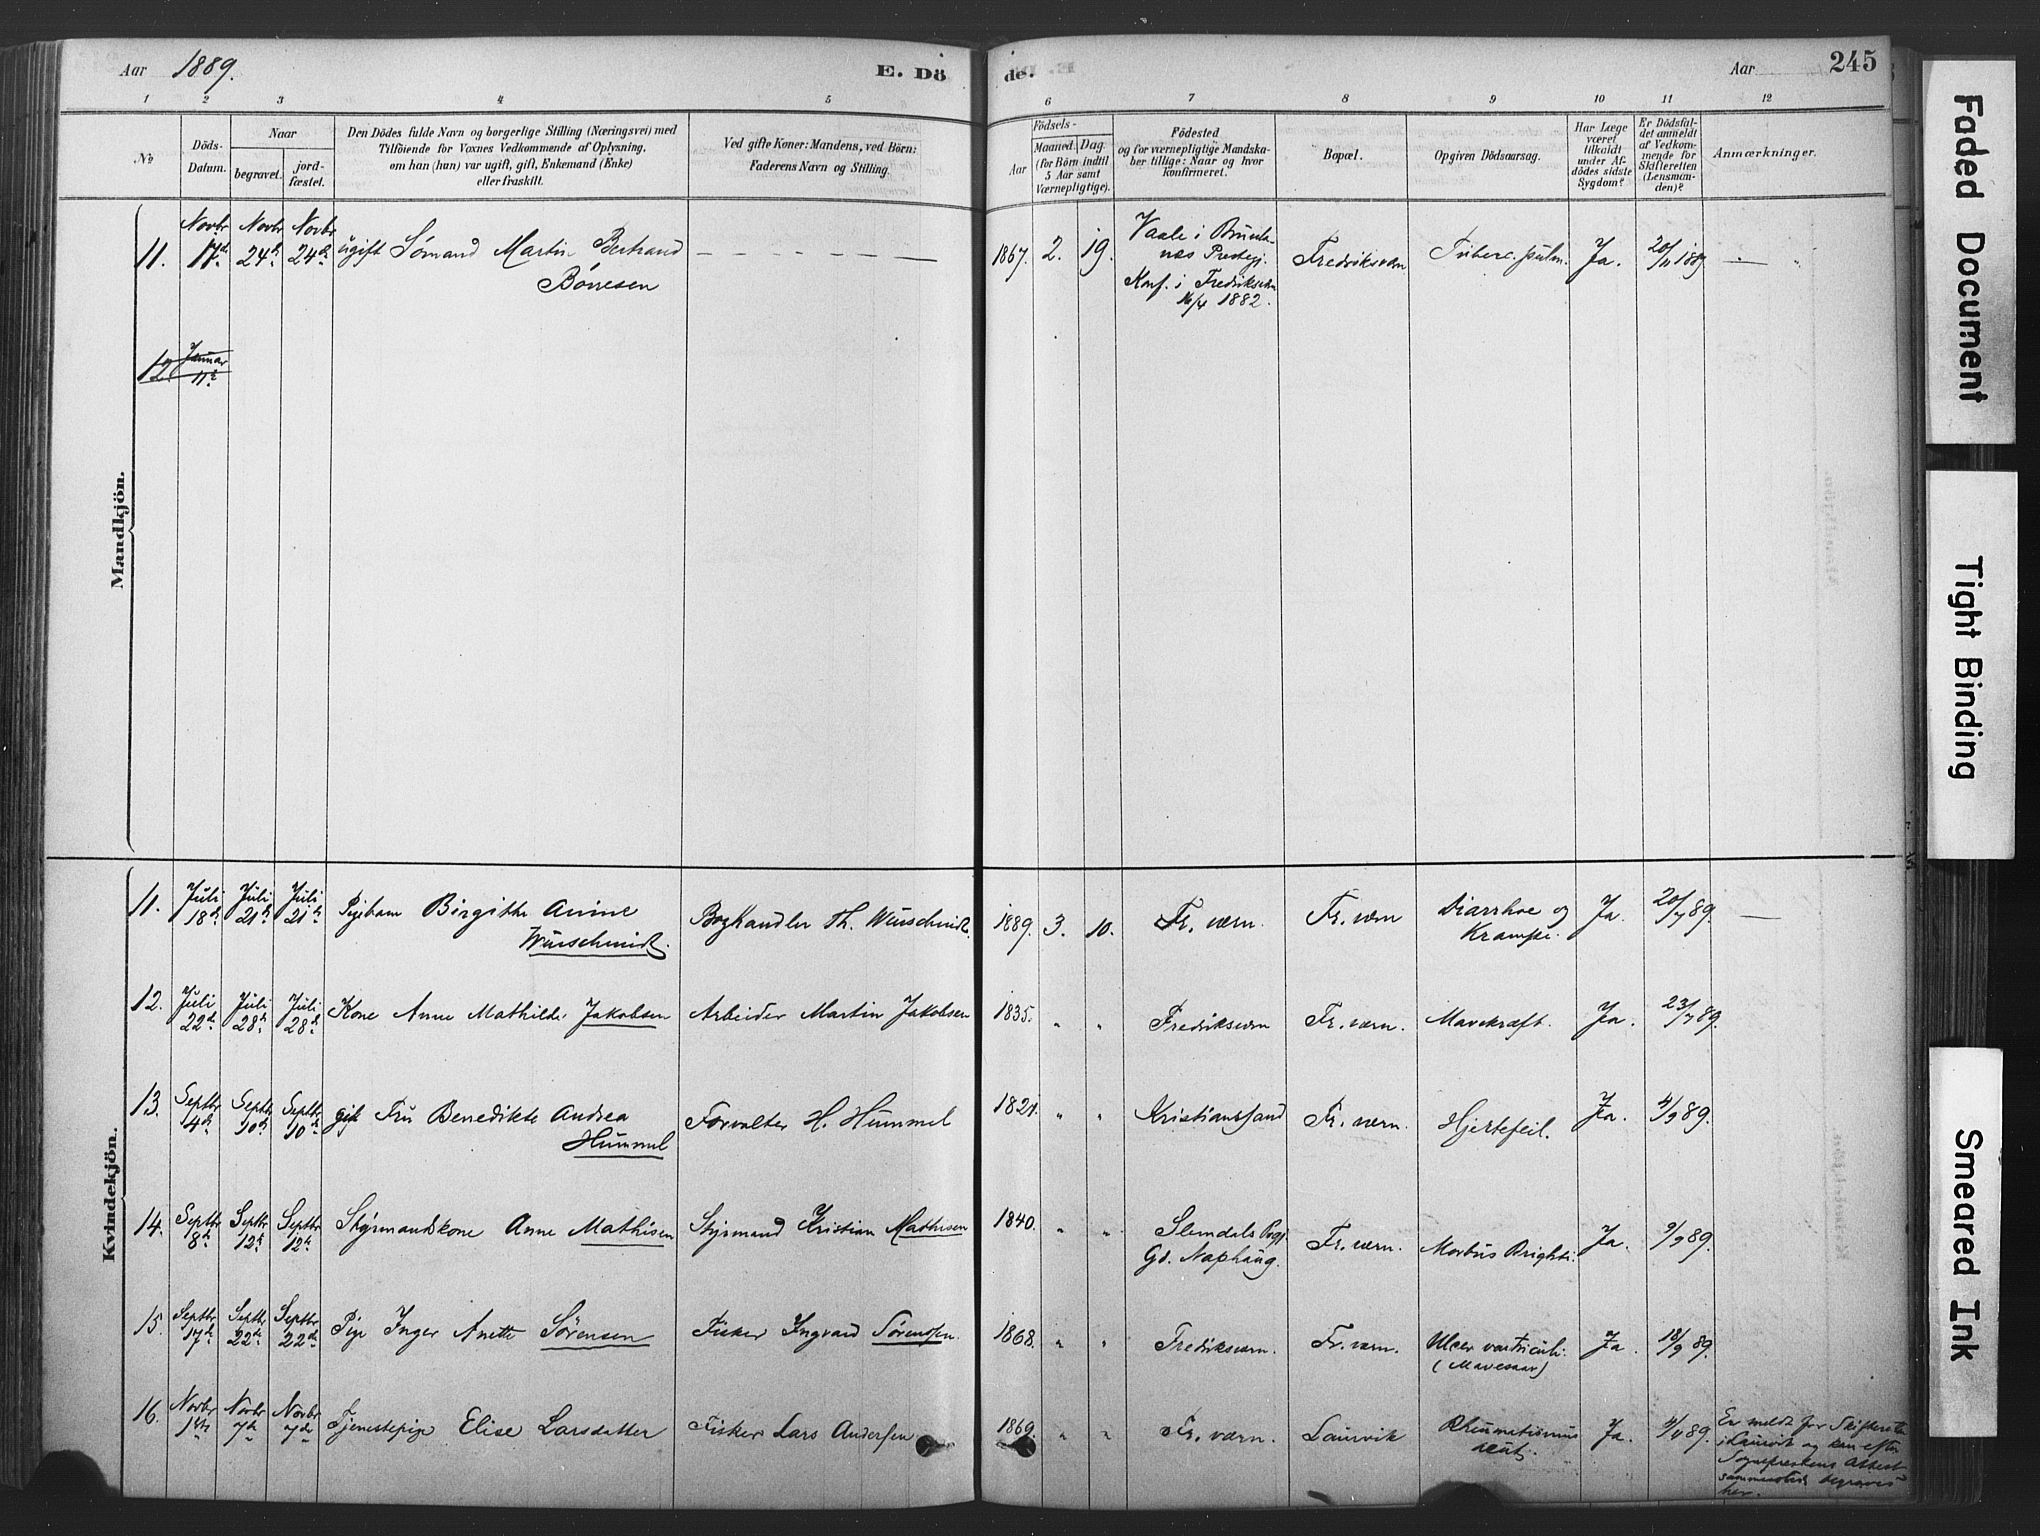 Aar 1889. E. Dö de. Aar 245
1 2 3 4 5 6 7 8 9 10 11 12
No
Döds-
Datum.
Naar
begravet.
jord-
fæstet.
Den Dödes fulde Navn og borgerlige Stilling (Næringsvei) med
Tilföiende for Voxnes Vedkommende af Oplysning,
om han (hun) var ugift, gift, Enkemand (Enke)
eller fraskilt.
Ved gifte Koner: Mandens, ved Börn:
Faderens Navn og Stilling.
Födsels-
Aar
Maaned. Dag.
(for Börn indtil
5 Aar samt
Værnepligtige).
Födested
og for værnepligtige Mandska-
ber tillige: Naar og hvor
konfirmeret.
Bopæl.
Opgiven Dödsaarsag.
Har Læge
været
tilkaldt
under Af-
dödes sidste
Sygdom?
Er Dödsfal-
det anmeldt
af Vedkom-
mende for
Skifteretten
(Lensman-
den)?
Anmærkninger.
Mandkjön.
11. Novbr 17de Novbr 24de Novbr 24de ugift Sømand Martin Bertrand
Bønesen
1867. 2. 19. Vaale i Brunla-
næs Prestegj.
Konf. i Fredriksværn
16/4 1882.
Fredriksværn Tuberc. pulm. Ja. 20/11 1889 — "
12 Januar
11te
Kvindekjön.
11. Juli 18de Juli 21de Juli 21de Pigebarn Birgitte Anine
Wurschmidt.
Boghandler Th. Wurschmidt. 1889. 3. 10. Fr. værn. Fr. værn Diarrhoe og
Krampe. Ja. 20/7 89. —
12. Juli 22de Juli 28de Juli 28de Kone Anne Mathilde Jakobsen Arbeider Martin Jakobsen 1835. " " Fredriksværn Fr. værn. Mavekræft. Ja. 23/7 89.
13. Septbr 4de Septbr 10de Septbr 10de gift Fru Benedikte Andrea
Hummel
Forvalter H. Hummel 1821. " " Kristianssand Fr. værn. Hjertefeil. Ja. 4/9 89.
14. Septbr 8de Septbr 12te Septbr 12te Styrmandskone Anne Mathisen Styrmand Kristian Mathisen 1840. " " Slemdals Prgj.
Gd. Naphaug. Fr. værn. Morbus Brighti. Ja. 9/9 89.
15. Septbr 17de Septbr 22de Septbr 22de Pige Inger Anette Sørensen Fisker Ingvard Sørensen. 1868. " " Fredriksværn. Fr. værn. Ulcer ventriculi.
(Mavesaar) Ja. 18/9 89.
16. Novbr 1ste Novbr 7de Novbr 7de Tjenestepige Elise Larsdatter Fisker Lars Andersen 1869. " " Fr. værn. Laurvik Rheumatismus
acut. Ja. 4/11 89.
Er meldt for Skifteretten
i Laurvik og kan efter
Sogneprestens Attest
sammesteds begraves
her.
Faded Document
Tight Binding
Smeared Ink